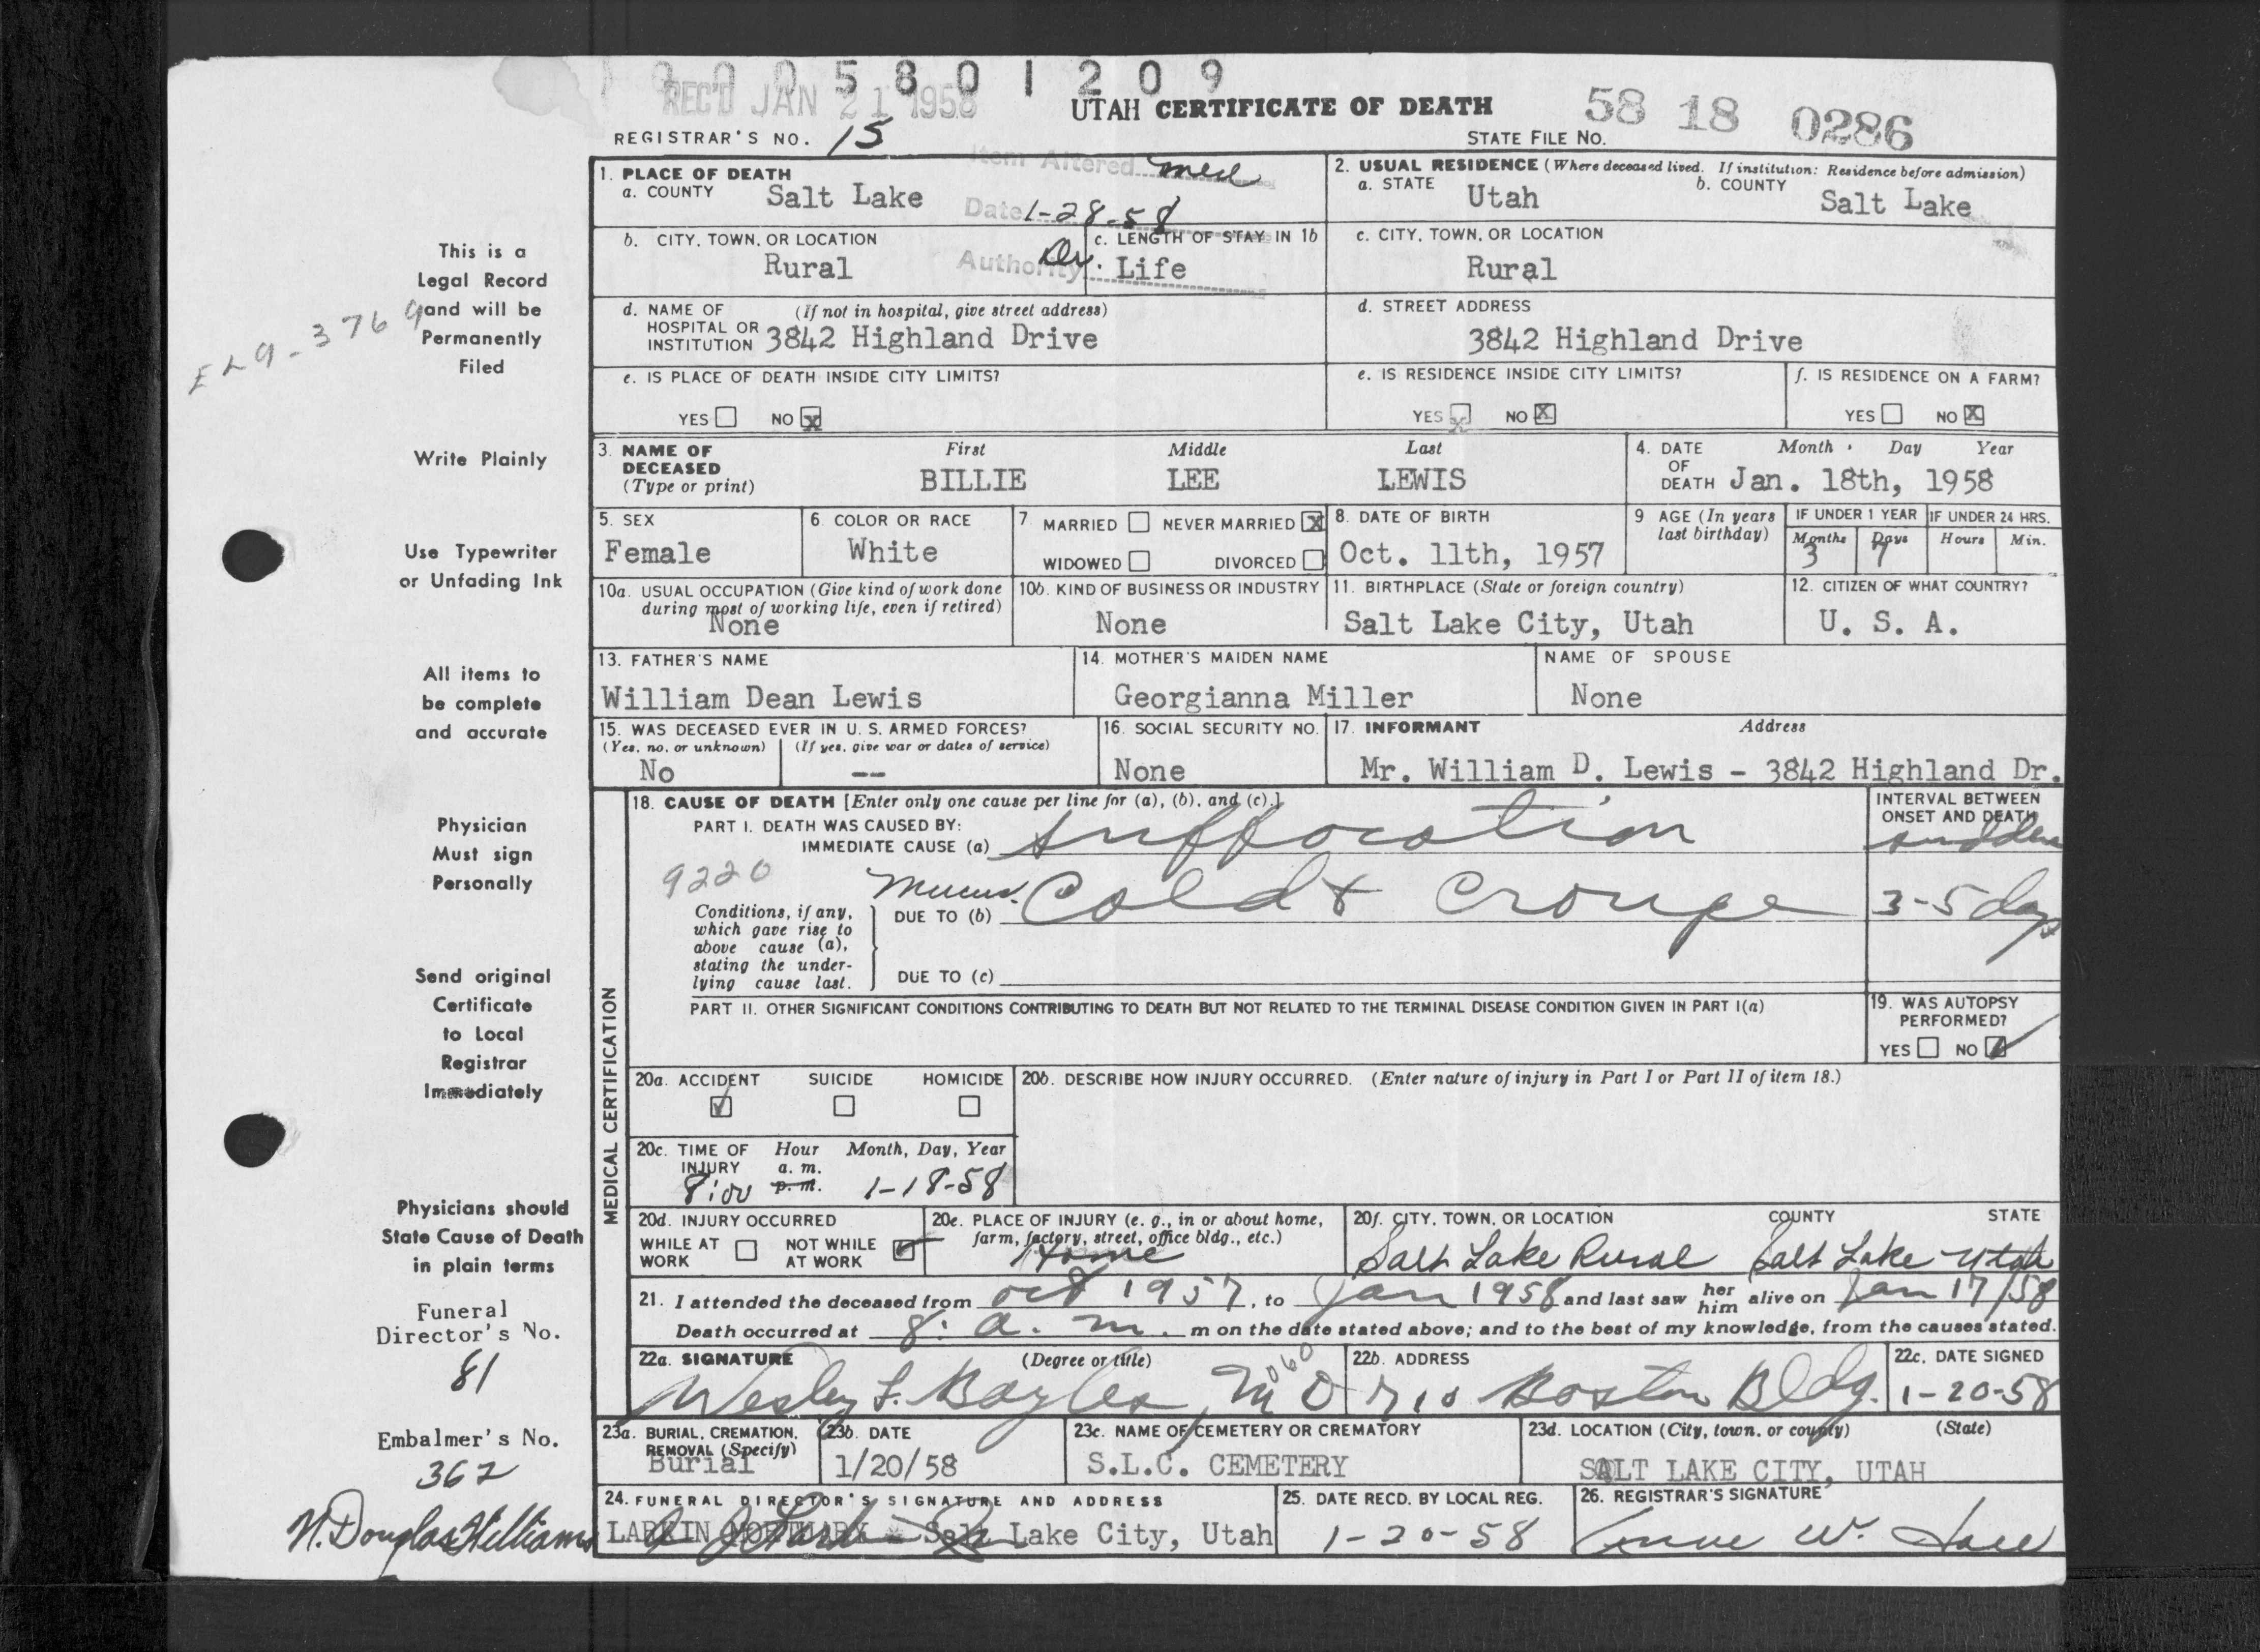 0 0 0 5 8 0 1 2 0 9
REC'D JAN 21 1958
UTAH CERTIFICATE OF DEATH
58 18 0286
REGISTRAR'S NO. 15
STATE FILE NO.
Item Altered
Date 1-28-58
Authority Dr.
1. PLACE OF DEATH
a. COUNTY Salt Lake
2. USUAL RESIDENCE (Where deceased lived. If institution: Residence before admission)
a. STATE Utah b. COUNTY Salt Lake
b. CITY, TOWN, OR LOCATION Rural
c. LENGTH OF STAY IN 1b Life
c. CITY, TOWN, OR LOCATION Rural
d. NAME OF HOSPITAL OR INSTITUTION (If not in hospital, give street address) 3842 Highland Drive
d. STREET ADDRESS 3842 Highland Drive
e. IS PLACE OF DEATH INSIDE CITY LIMITS?
YES NO X
e. IS RESIDENCE INSIDE CITY LIMITS?
YES X NO X
f. IS RESIDENCE ON A FARM?
YES NO X
3. NAME OF DECEASED (Type or print)
First Middle Last
BILLIE LEE LEWIS
4. DATE OF DEATH Month Day Year
Jan. 18th, 1958
5. SEX Female
6. COLOR OR RACE White
7. MARRIED NEVER MARRIED X
WIDOWED DIVORCED
8. DATE OF BIRTH Oct. 11th, 1957
9 AGE (In years last birthday)
IF UNDER 1 YEAR Months 3 Days 7
IF UNDER 24 HRS. Hours Min.
10a. USUAL OCCUPATION (Give kind of work done during most of working life, even if retired) None
10b. KIND OF BUSINESS OR INDUSTRY None
11. BIRTHPLACE (State or foreign country) Salt Lake City, Utah
12. CITIZEN OF WHAT COUNTRY? U. S. A.
13. FATHER'S NAME William Dean Lewis
14. MOTHER'S MAIDEN NAME Georgianna Miller
NAME OF SPOUSE None
15. WAS DECEASED EVER IN U. S. ARMED FORCES?
(Yes, no, or unknown) (If yes, give war or dates of service)
No --
16. SOCIAL SECURITY NO. None
17. INFORMANT Address
Mr. William D. Lewis - 3842 Highland Dr.
MEDICAL CERTIFICATION
18. CAUSE OF DEATH [Enter only one cause per line for (a), (b), and (c).]
INTERVAL BETWEEN ONSET AND DEATH
PART I. DEATH WAS CAUSED BY:
IMMEDIATE CAUSE (a) Suffocation sudden
9220
Conditions, if any, which gave rise to above cause (a), stating the underlying cause last.
DUE TO (b) Mucus. Cold & Croupe 3-5 days
DUE TO (c)
PART II. OTHER SIGNIFICANT CONDITIONS CONTRIBUTING TO DEATH BUT NOT RELATED TO THE TERMINAL DISEASE CONDITION GIVEN IN PART I(a)
19. WAS AUTOPSY PERFORMED?
YES NO
20a. ACCIDENT SUICIDE HOMICIDE
20b. DESCRIBE HOW INJURY OCCURRED. (Enter nature of injury in Part I or Part II of item 18.)
20c. TIME OF INJURY Hour a. m. p. m. Month, Day, Year
8:00 1-18-58
20d. INJURY OCCURRED
WHILE AT WORK NOT WHILE AT WORK
20e. PLACE OF INJURY (e. g., in or about home, farm, factory, street, office bldg., etc.)
Home
20f. CITY, TOWN, OR LOCATION COUNTY STATE
Salt Lake Rural Salt Lake Utah
21. I attended the deceased from Oct 1957, to Jan 1958 and last saw her him alive on Jan 17/58
Death occurred at 8: a. m. m on the date stated above; and to the best of my knowledge, from the causes stated.
22a. SIGNATURE (Degree or title)
Wesley F. Bayles, MD
060
22b. ADDRESS 710 Boston Bldg.
22c. DATE SIGNED 1-20-58
23a. BURIAL, CREMATION, REMOVAL (Specify) Burial
23b. DATE 1/20/58
23c. NAME OF CEMETERY OR CREMATORY S.L.C. CEMETERY
23d. LOCATION (City, town, or county) (State)
SALT LAKE CITY, UTAH
24. FUNERAL DIRECTOR'S SIGNATURE AND ADDRESS
LARKIN MORTUARY Salt Lake City, Utah
25. DATE RECD. BY LOCAL REG. 1-20-58
26. REGISTRAR'S SIGNATURE
This is a
Legal Record
and will be
Permanently
Filed
Write Plainly
Use Typewriter
or Unfading Ink
All items to
be complete
and accurate
Physician
Must sign
Personally
Send original
Certificate
to Local
Registrar
Immediately
Physicians should
State Cause of Death
in plain terms
Funeral
Director's No.
81
Embalmer's No.
362
N. Douglas Williams